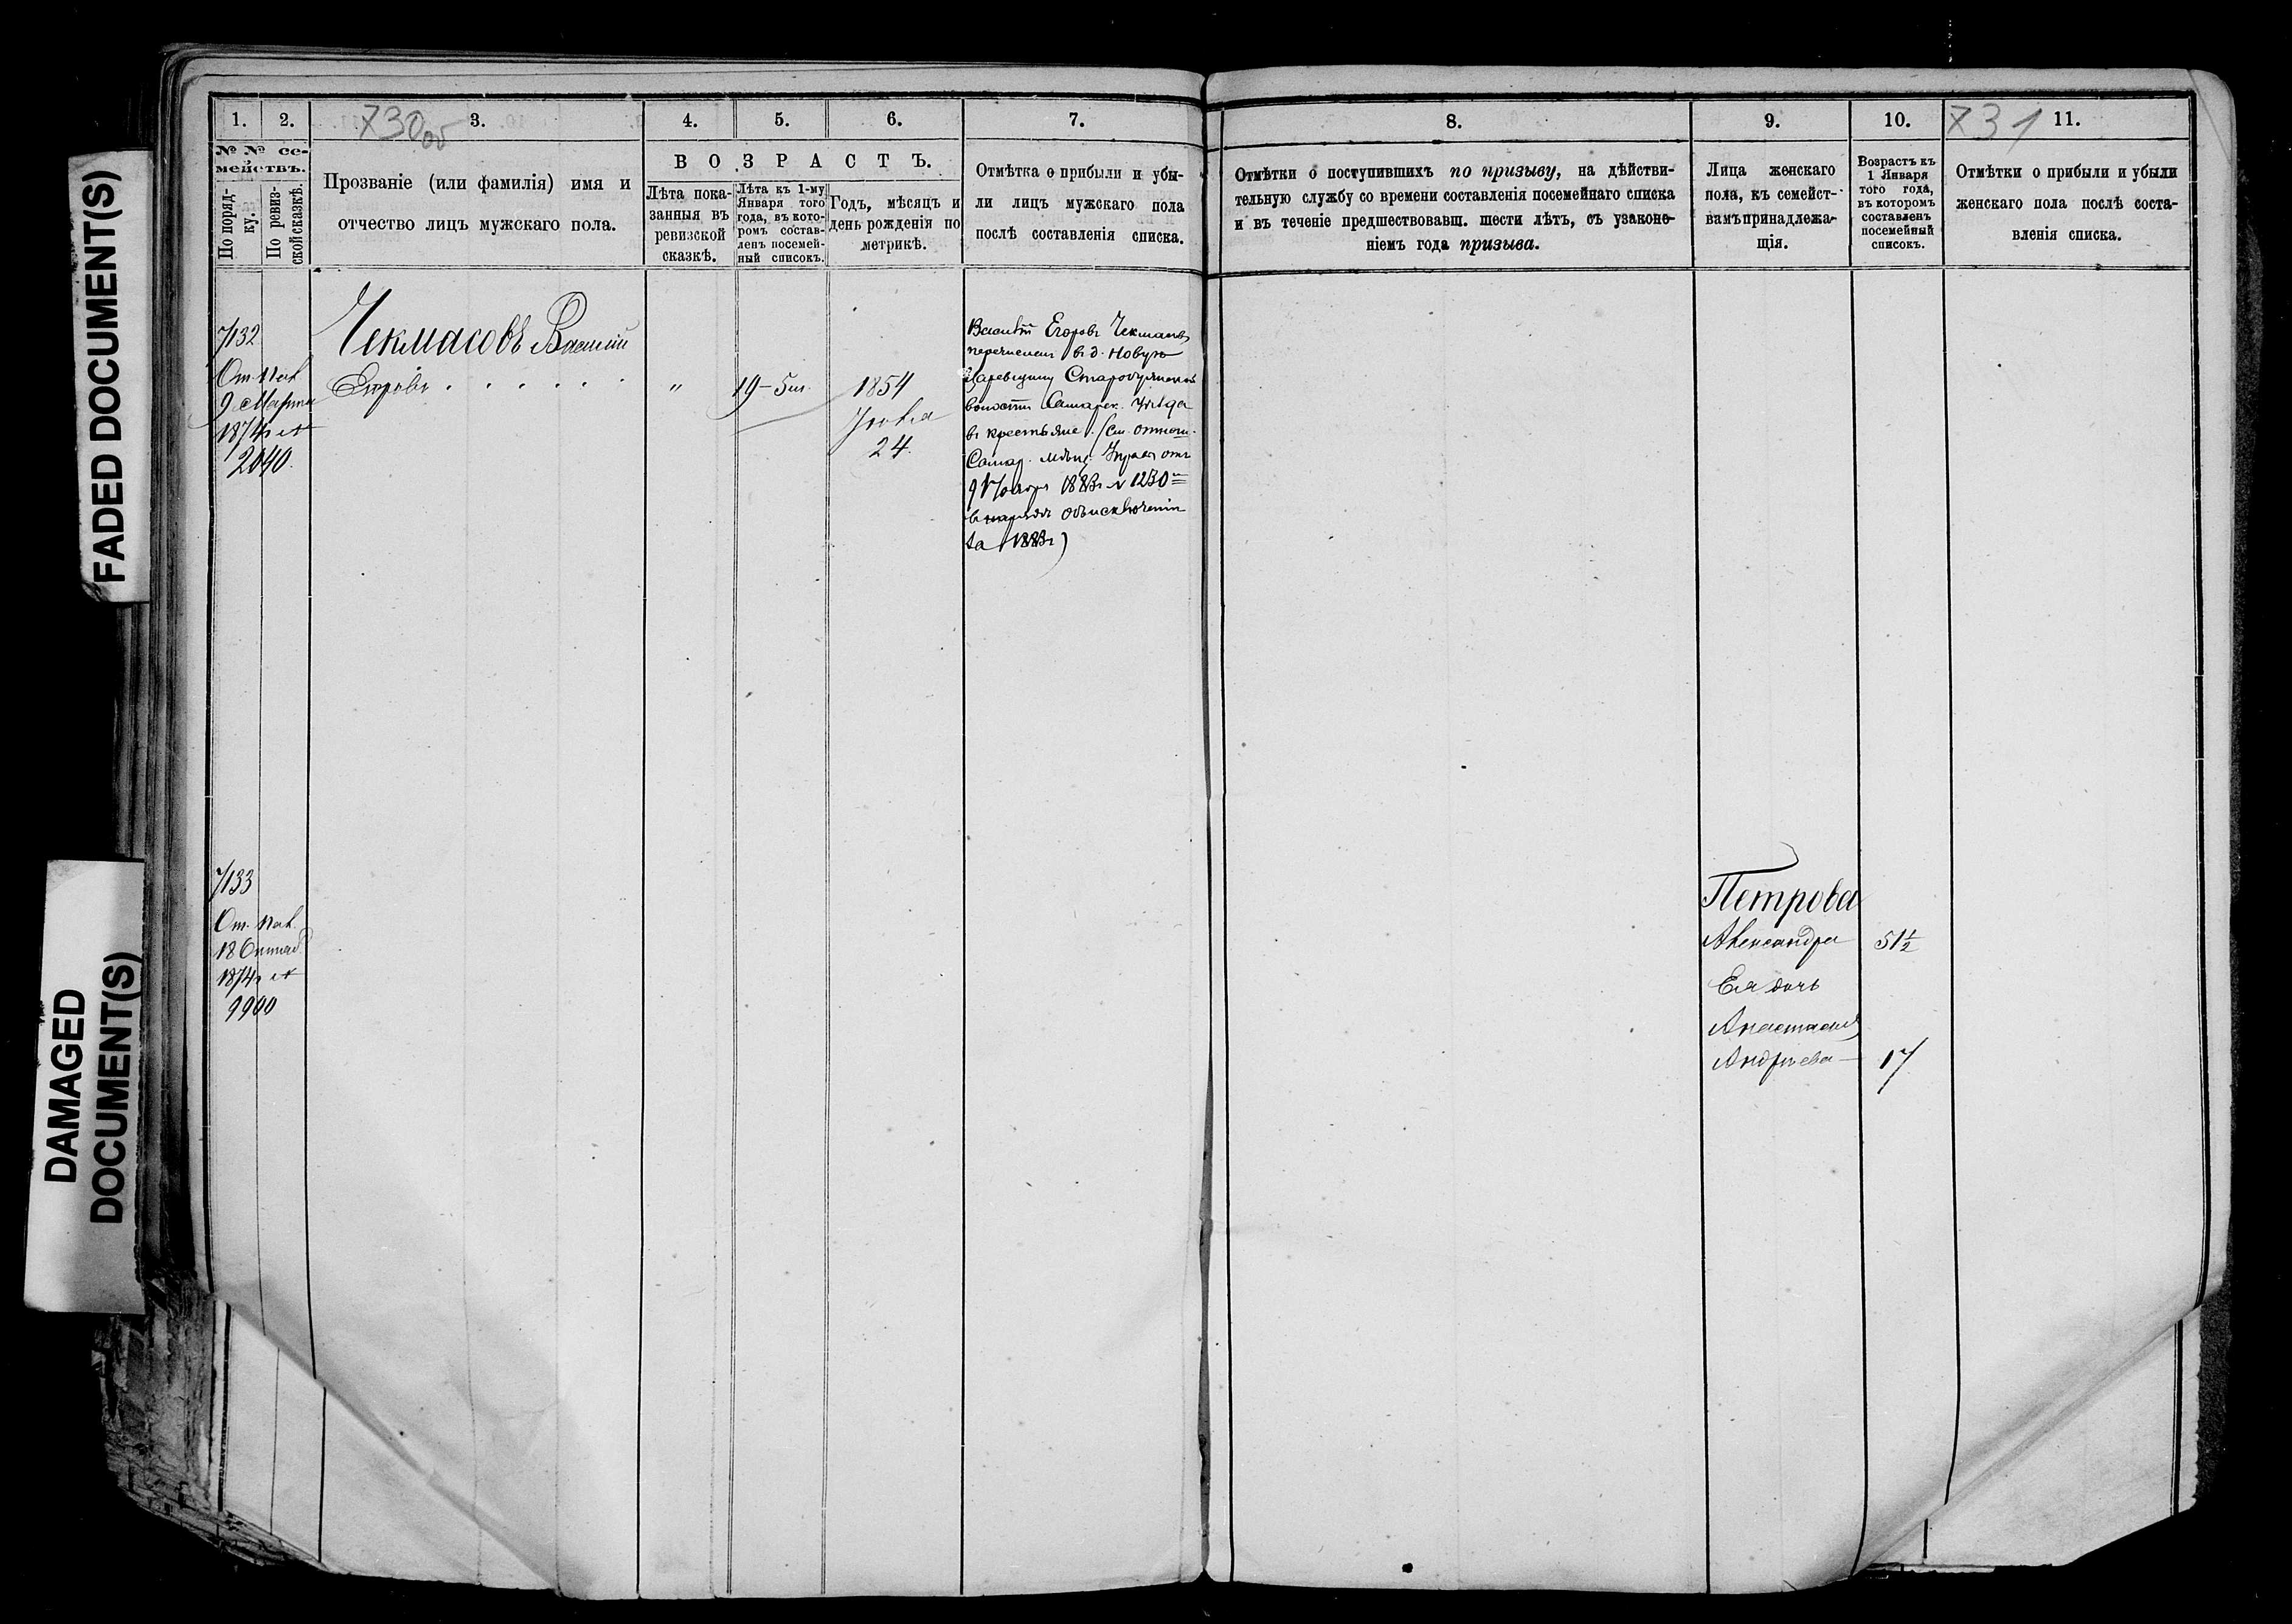 FADED DOCUMENT(S)
DAMAGED
DOCUMENT(S)
1.
2.
730об
3.
4.
5.
6.
7.
№ № се-
мействъ.
По поряд-
ку.
По ревиз-
ской сказкѣ.
Прозваніе (или фамилія) имя и
отчество лицъ мужскаго пола.
ВОЗРАСТЪ.
Лѣта пока-
занныя въ
ревизской
сказкѣ.
Лѣта къ 1-му
Января того
года, въ кото-
ромъ состав-
ленъ посемей-
ный списокъ.
Годъ, мѣсяцъ и
день рожденія по
метрикѣ.
Отмѣтка о прибыли и убы-
ли лицъ мужскаго пола
послѣ составленія списка.
7132
От. Пал.
9 Марта
1874 г №
2040.
Чекмасовъ Василій
Егоровъ . . . . . .
"
19 – 5 м.
1854
Іюля
24.
Василій Егоровъ Чекмасовъ
перечисленъ въ д. Новую
Царевщину
волости Самарск. Уѣзда
въ крестьяне. (См. отнош.
Самар. мѣщ. Управ отъ
9 1883 г № 1230
объ исключеніи
за 1883 г)
7133
От. Пал.
18
1874 г №
9900
8.
9.
10.
731
11.
Отмѣтки о поступившихъ по призыву, на дѣйстви-
тельную службу со времени составленія посемейнаго списка
и въ теченіе предшествовавш. шести лѣтъ, съ узаконе-
ніемъ года призыва.
Лица женскаго
пола, къ семейст-
вамъ принадлежа-
щія.
Возрастъ къ
1 Января
того года,
въ которомъ
составленъ
посемейный
списокъ.
Отмѣтки о прибыли и убыли
женскаго пола послѣ соста-
вленія списка.
Петрова
Александра 51½
Ея дочь
Анастасія
Андреева — 17